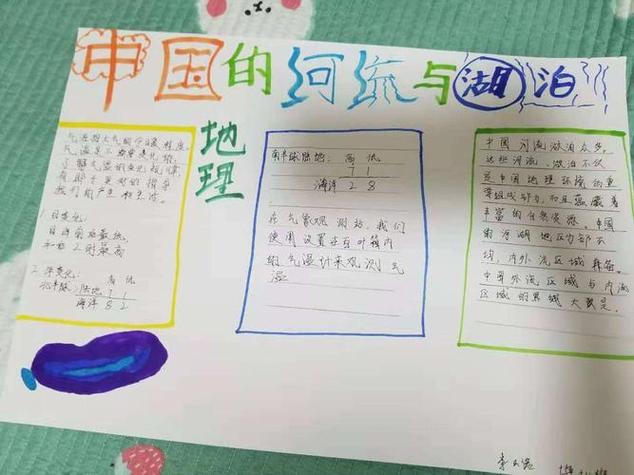 中国的河流与湖泊
地理
气温指大气的冷热程度。
气温是不断变化着,
了解气温的变化规律,
有助于更好的指导
我们的产生和生活。
1.日变化:
日出前后最低,
午后2时最高
2.年变化: 高 低
北半球:陆地 7 1
海洋 8 2
南半球陆地: 高 低
7 1
海洋 2 8
在气象观测站,我们
使用设置于百叶箱内
的气温计来观测气
温
中国河流湖泊众多,
这些河流、湖泊不仅
是中国地理环境的重
要组成部分,而且蕴藏着
丰富的自然资源。中国
的河湖地区分部不
均,内外流区域兼备。
中国外流区域与内流
区域的界线大致是。